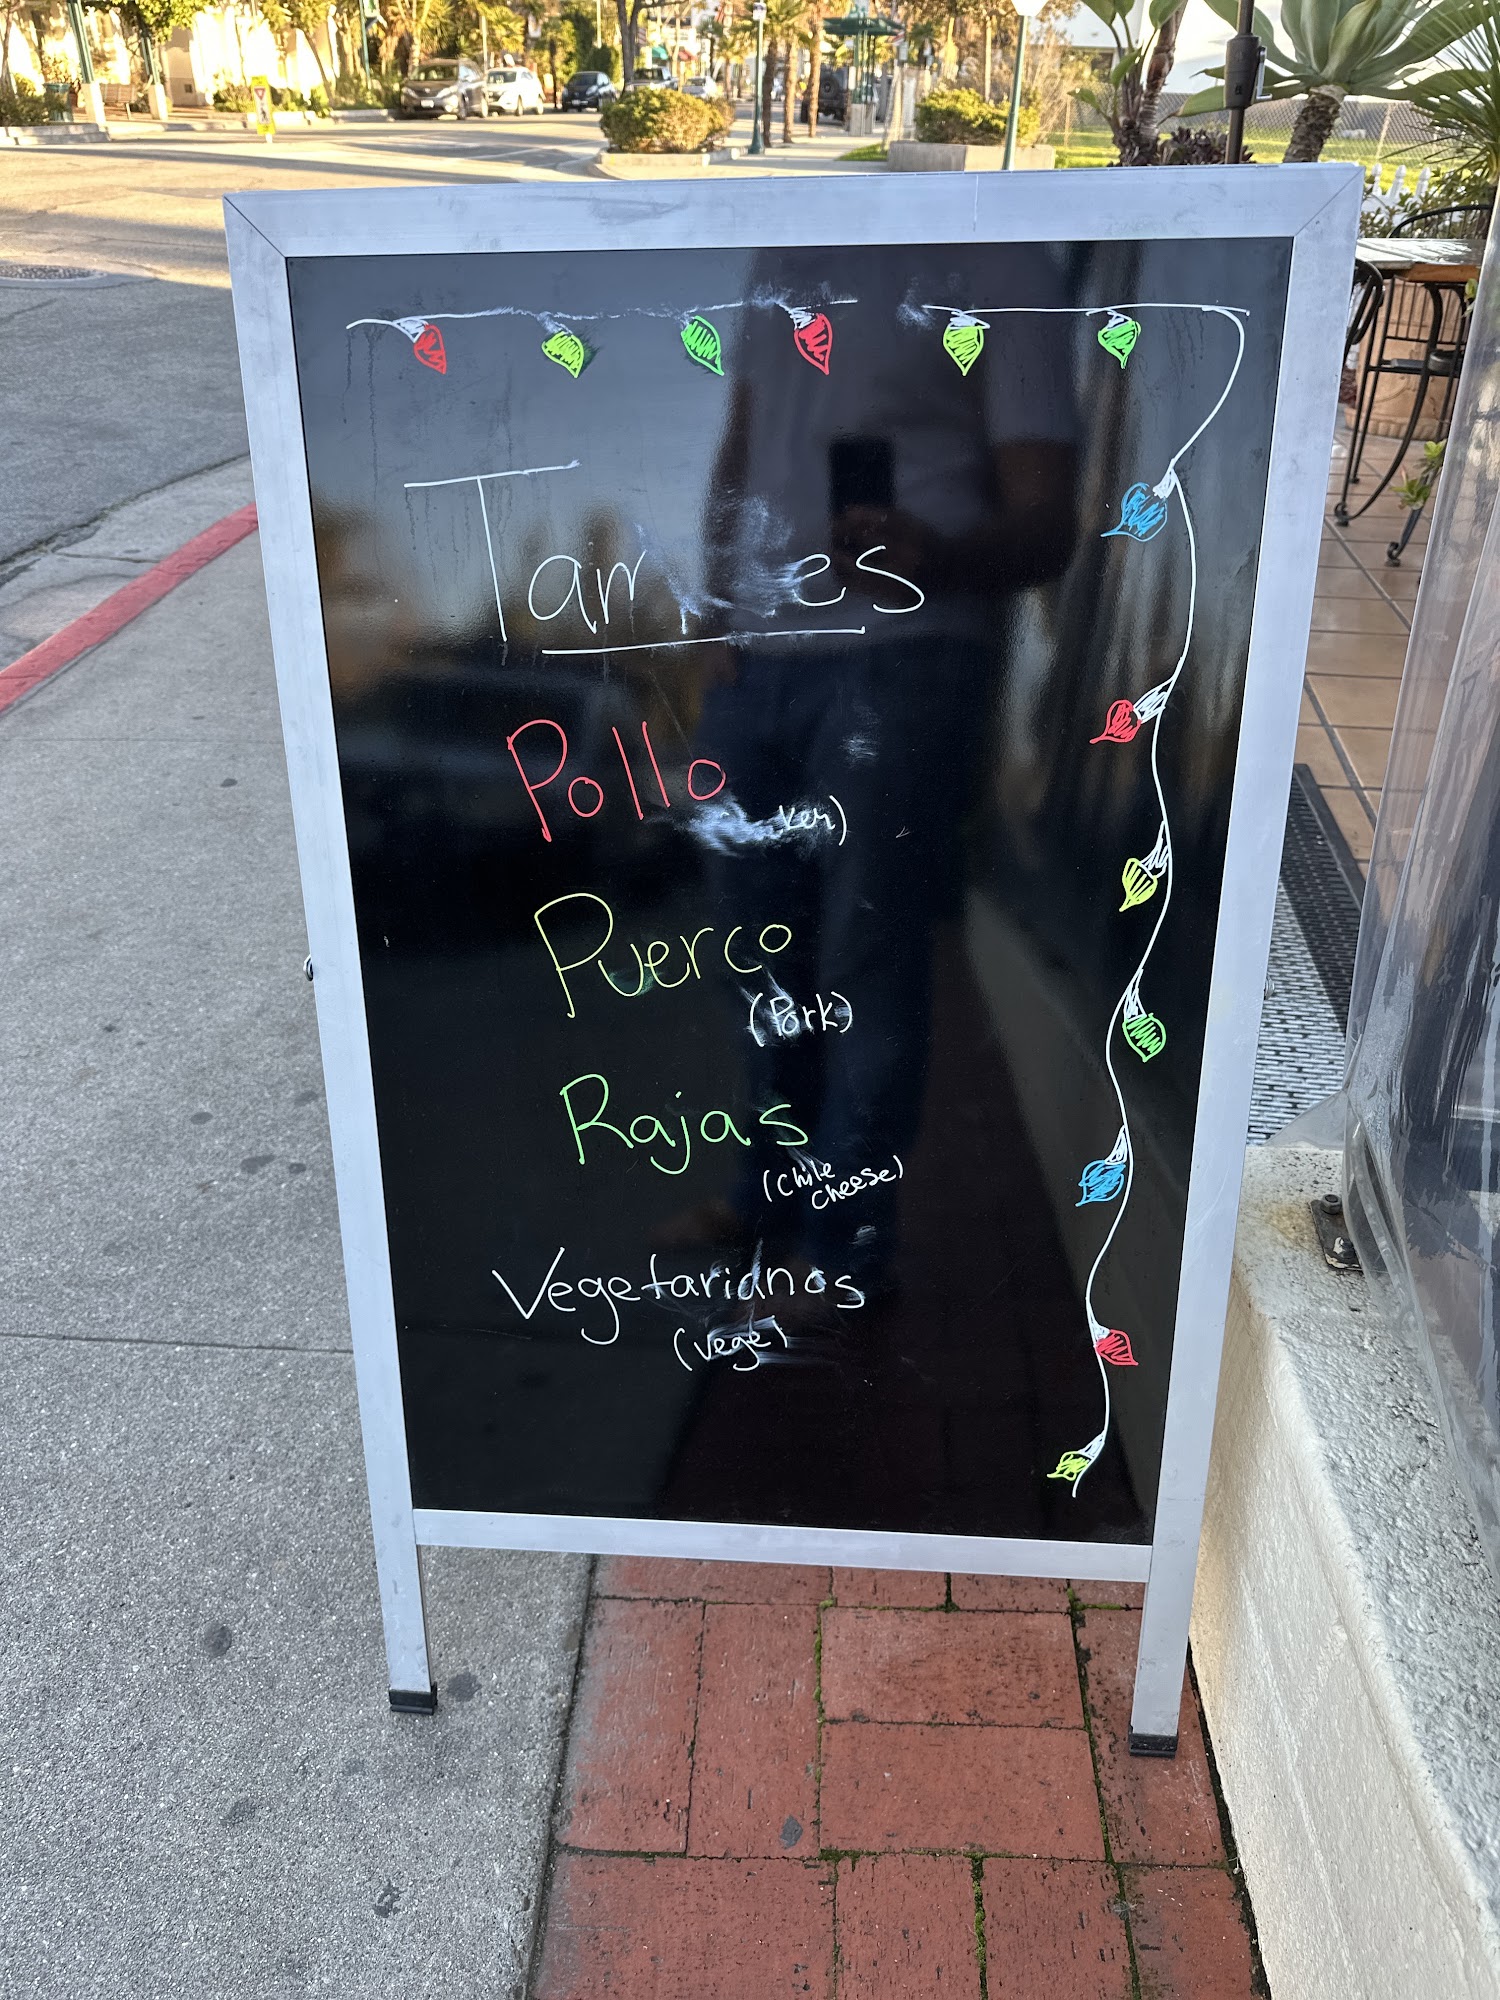 Pollo
Puerco
(Pork)
Rajas
(Chile
cheese)
Vegetarianos
(vege)